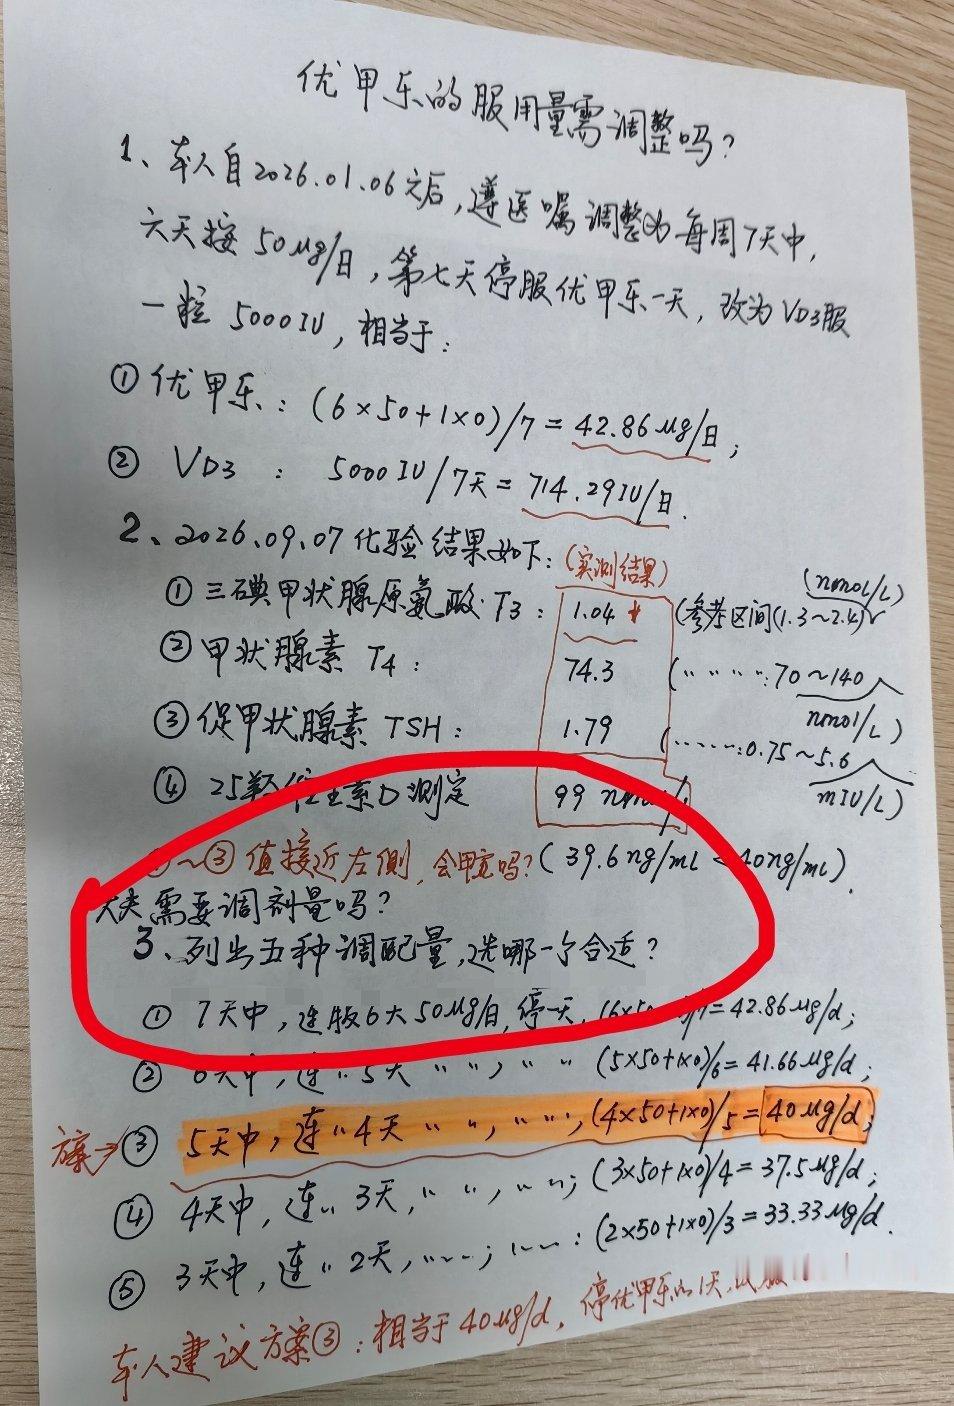 优甲乐的服用量需调整吗?
1、本人自2026.01.06之后,遵医嘱调整为每周7天中,
六天按50μg/日,第七天停服优甲乐一天,改为VD3服
一粒5000IU,相当于:
①优甲乐:(6×50+1×0)/7=42.86μg/日;
②VD3:5000IU/7天=714.29IU/日.
2、2026.09.07化验结果如下:(实测结果)
(nmol/L)
①三碘甲状腺原氨酸T3:1.04↓(参考区间(1.3~2.4)
②甲状腺素T4:74.3(〃〃〃:70~140
nmol/L)
③促甲状腺素TSH:1.79(……:0.75~5.6
mIU/L)
④25羟维生素D测定 99
~③值接近左侧,会甲亢吗?(39.6ng/mL<40ng/mL).
需要调剂量吗?
3、列出五种调配量,选哪一个合适?
①7天中,连服6天50μg/日,停一天,(6×50 )/7=42.86μg/d;
②6天中,连〃5天〃〃,〃〃(5×50+1×0)/6=41.66μg/d;
方案→③5天中,连〃4天〃〃,〃〃,(4×50+1×0)/5=40μg/d;
④4天中,连〃3天,〃〃,〃〃;(3×50+1×0)/4=37.5μg/d;
⑤3天中,连〃2天,〃……;……:(2×50+1×0)/3=33.33μg/d.
本人建议方案③:相当于40μg/d,停优甲乐的1天,